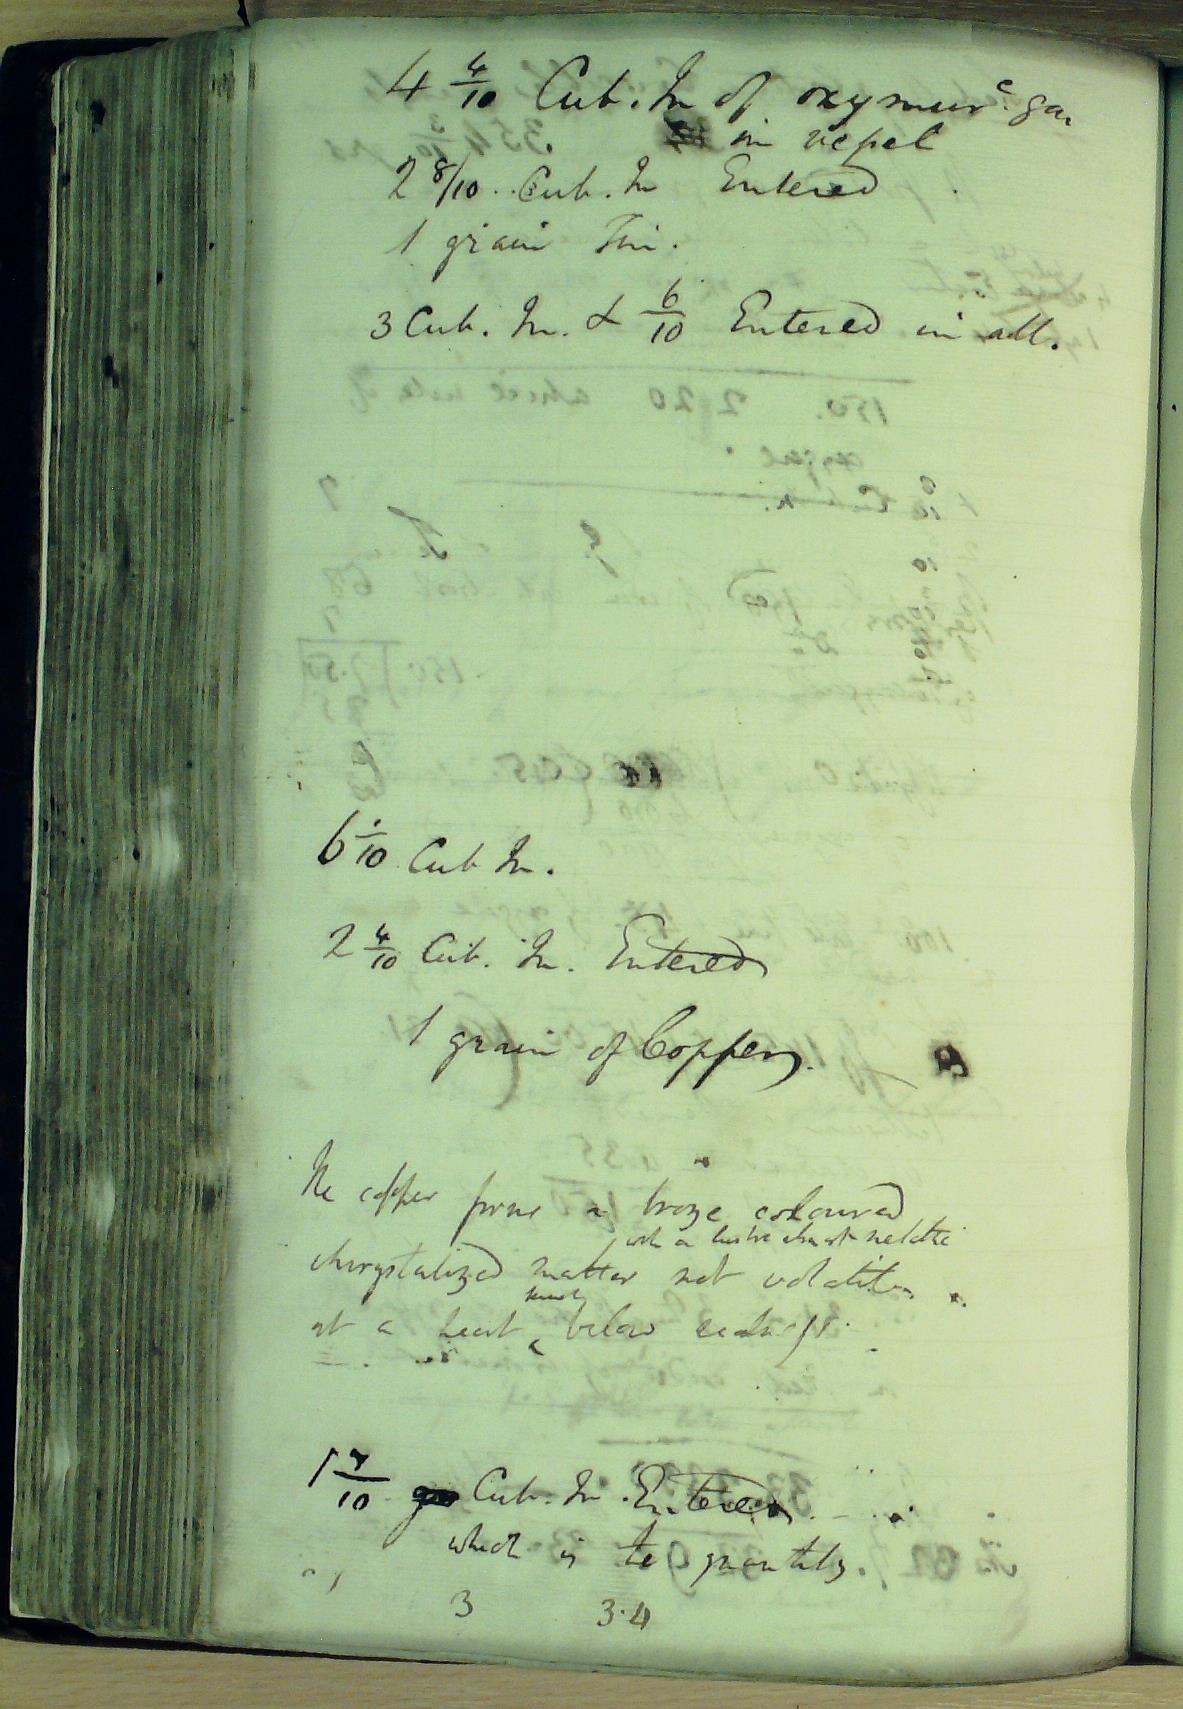 4 4/10 Cub. In of oxymurc. gas
in vessel
2 8/10 Cub. In Entered
1 grain Tin.
3 Cub. In. & 6/10 Entered in all.
6 1/10 Cub In.
2 4/10 Cub. In. Entered
1 grain of Copper.
The copper forms a bronze coloured
with a lustre almost metallic
chrystalized matter not volatile
at a heat nearly below redness.
1 7/10 Cub. In. Entered
which is the quantity.
3 3.4